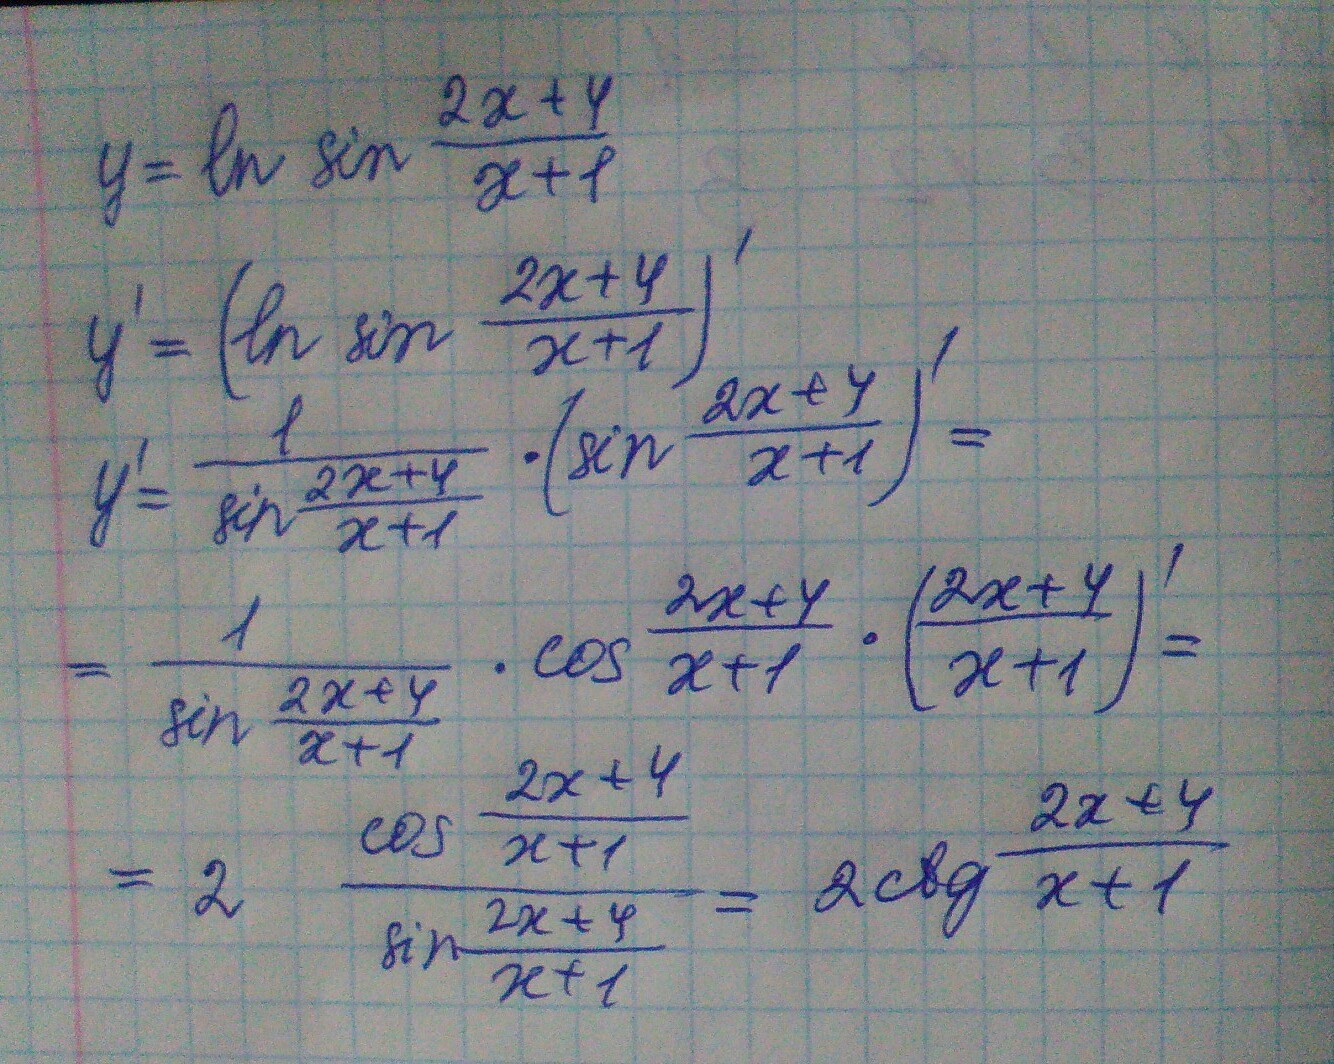 y = ln sin (2x+4)/(x+1)
y' = (ln sin (2x+4)/(x+1))'
y' = 1/(sin (2x+4)/(x+1)) · (sin (2x+4)/(x+1))' =
= 1/(sin (2x+4)/(x+1)) · cos (2x+4)/(x+1) · ((2x+4)/(x+1))' =
= 2 (cos (2x+4)/(x+1))/(sin (2x+4)/(x+1)) = 2 ctg (2x+4)/(x+1)